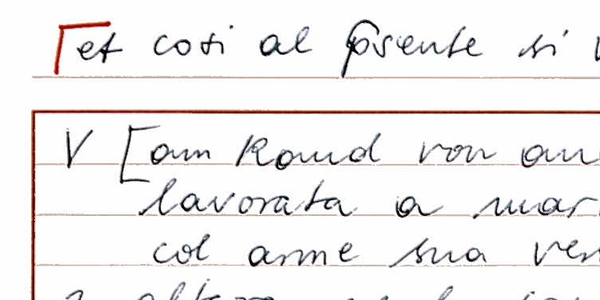 et cosi al psente si
V [am Rand von
lavorata a mar
col arme sua ver